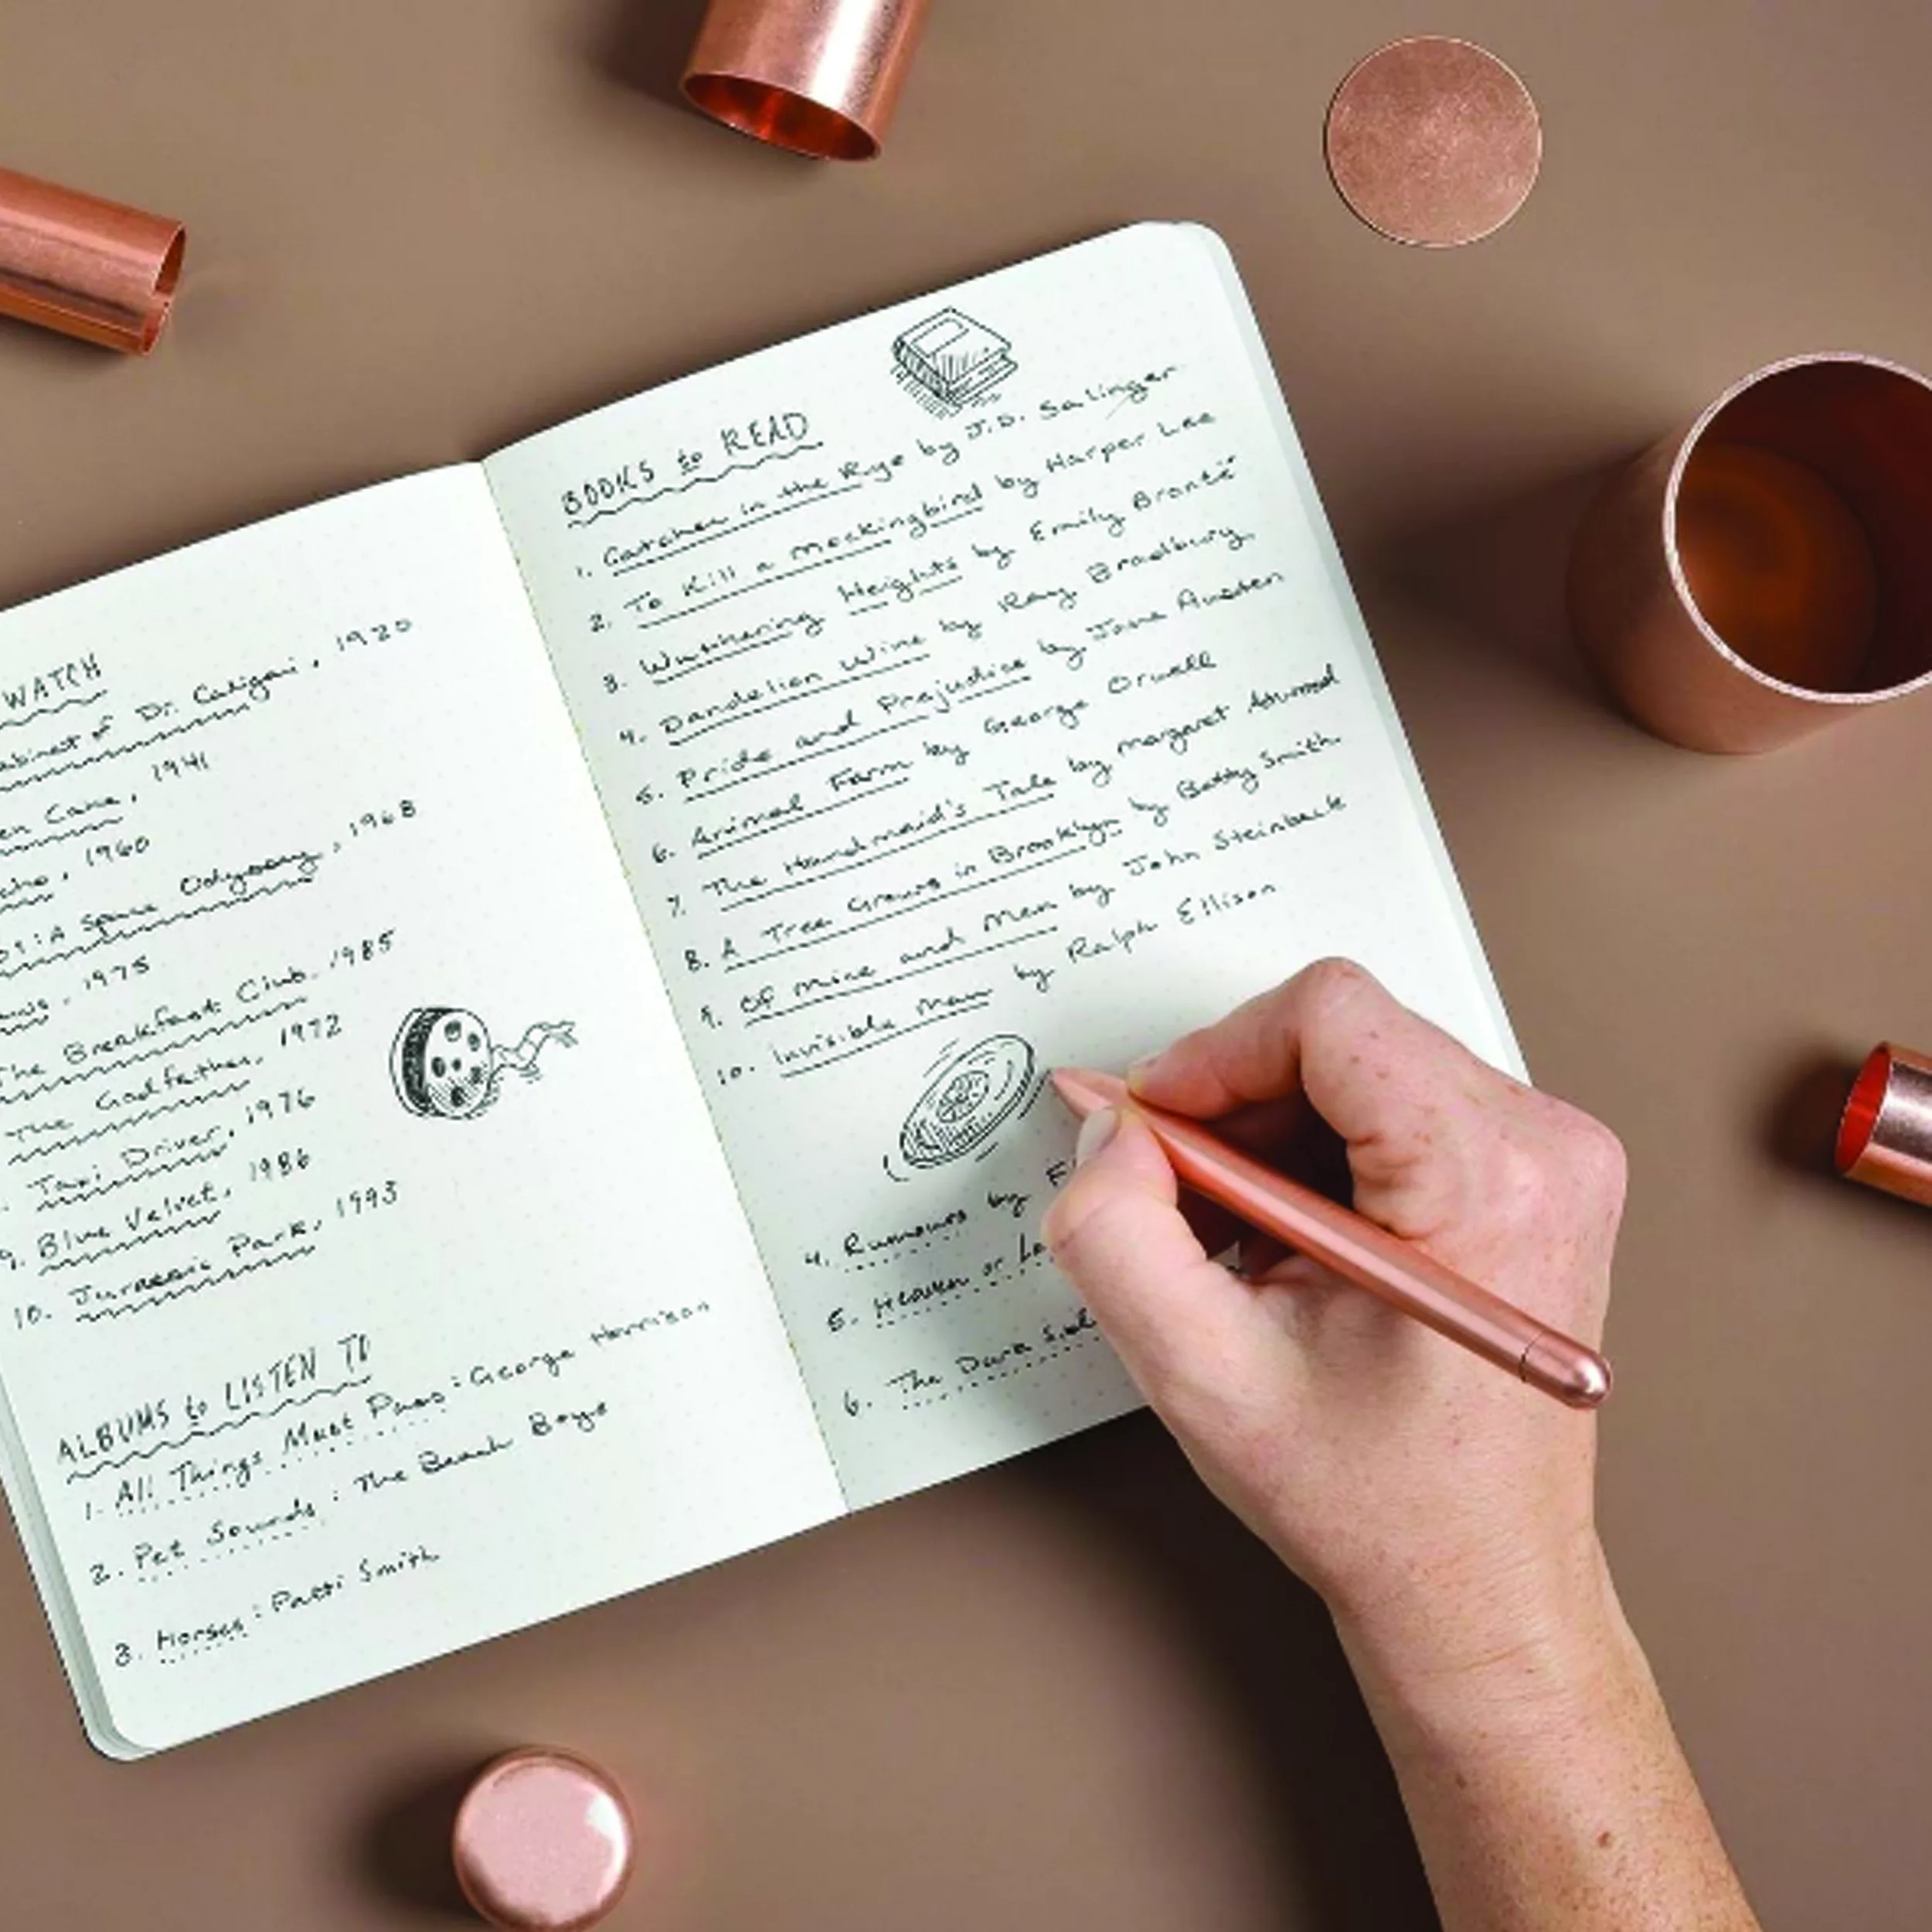 WATCH
abinet of Dr. Caligari, 1920
en Cane, 1941
cho, 1960
01: A Space Odyssey, 1968
aws, 1975
The Breakfast Club, 1985
The Godfather, 1972
Taxi Driver, 1976
9. Blue Velvet, 1986
10. Jurassic Park, 1993
ALBUMS to LISTEN TO
1. All Things Must Pass: George Harrison
2. Pet Sounds: The Beach Boys
3. Horses: Patti Smith
BOOKS to READ
1. Catcher in the Rye by J.D. Salinger
2. To Kill a Mockingbird by Harper Lee
3. Wuthering Heights by Emily Brontë
4. Dandelion Wine by Ray Bradbury
5. Pride and Prejudice by Jane Austen
6. Animal Farm by George Orwell
7. The Handmaid's Tale by Margaret Atwood
8. A Tree Grows in Brooklyn by Betty Smith
9. Of Mice and Men by John Steinback
10. Invisible Man by Ralph Ellison
4. Rumours by F
5. Heaven or La
6. The Dark Side